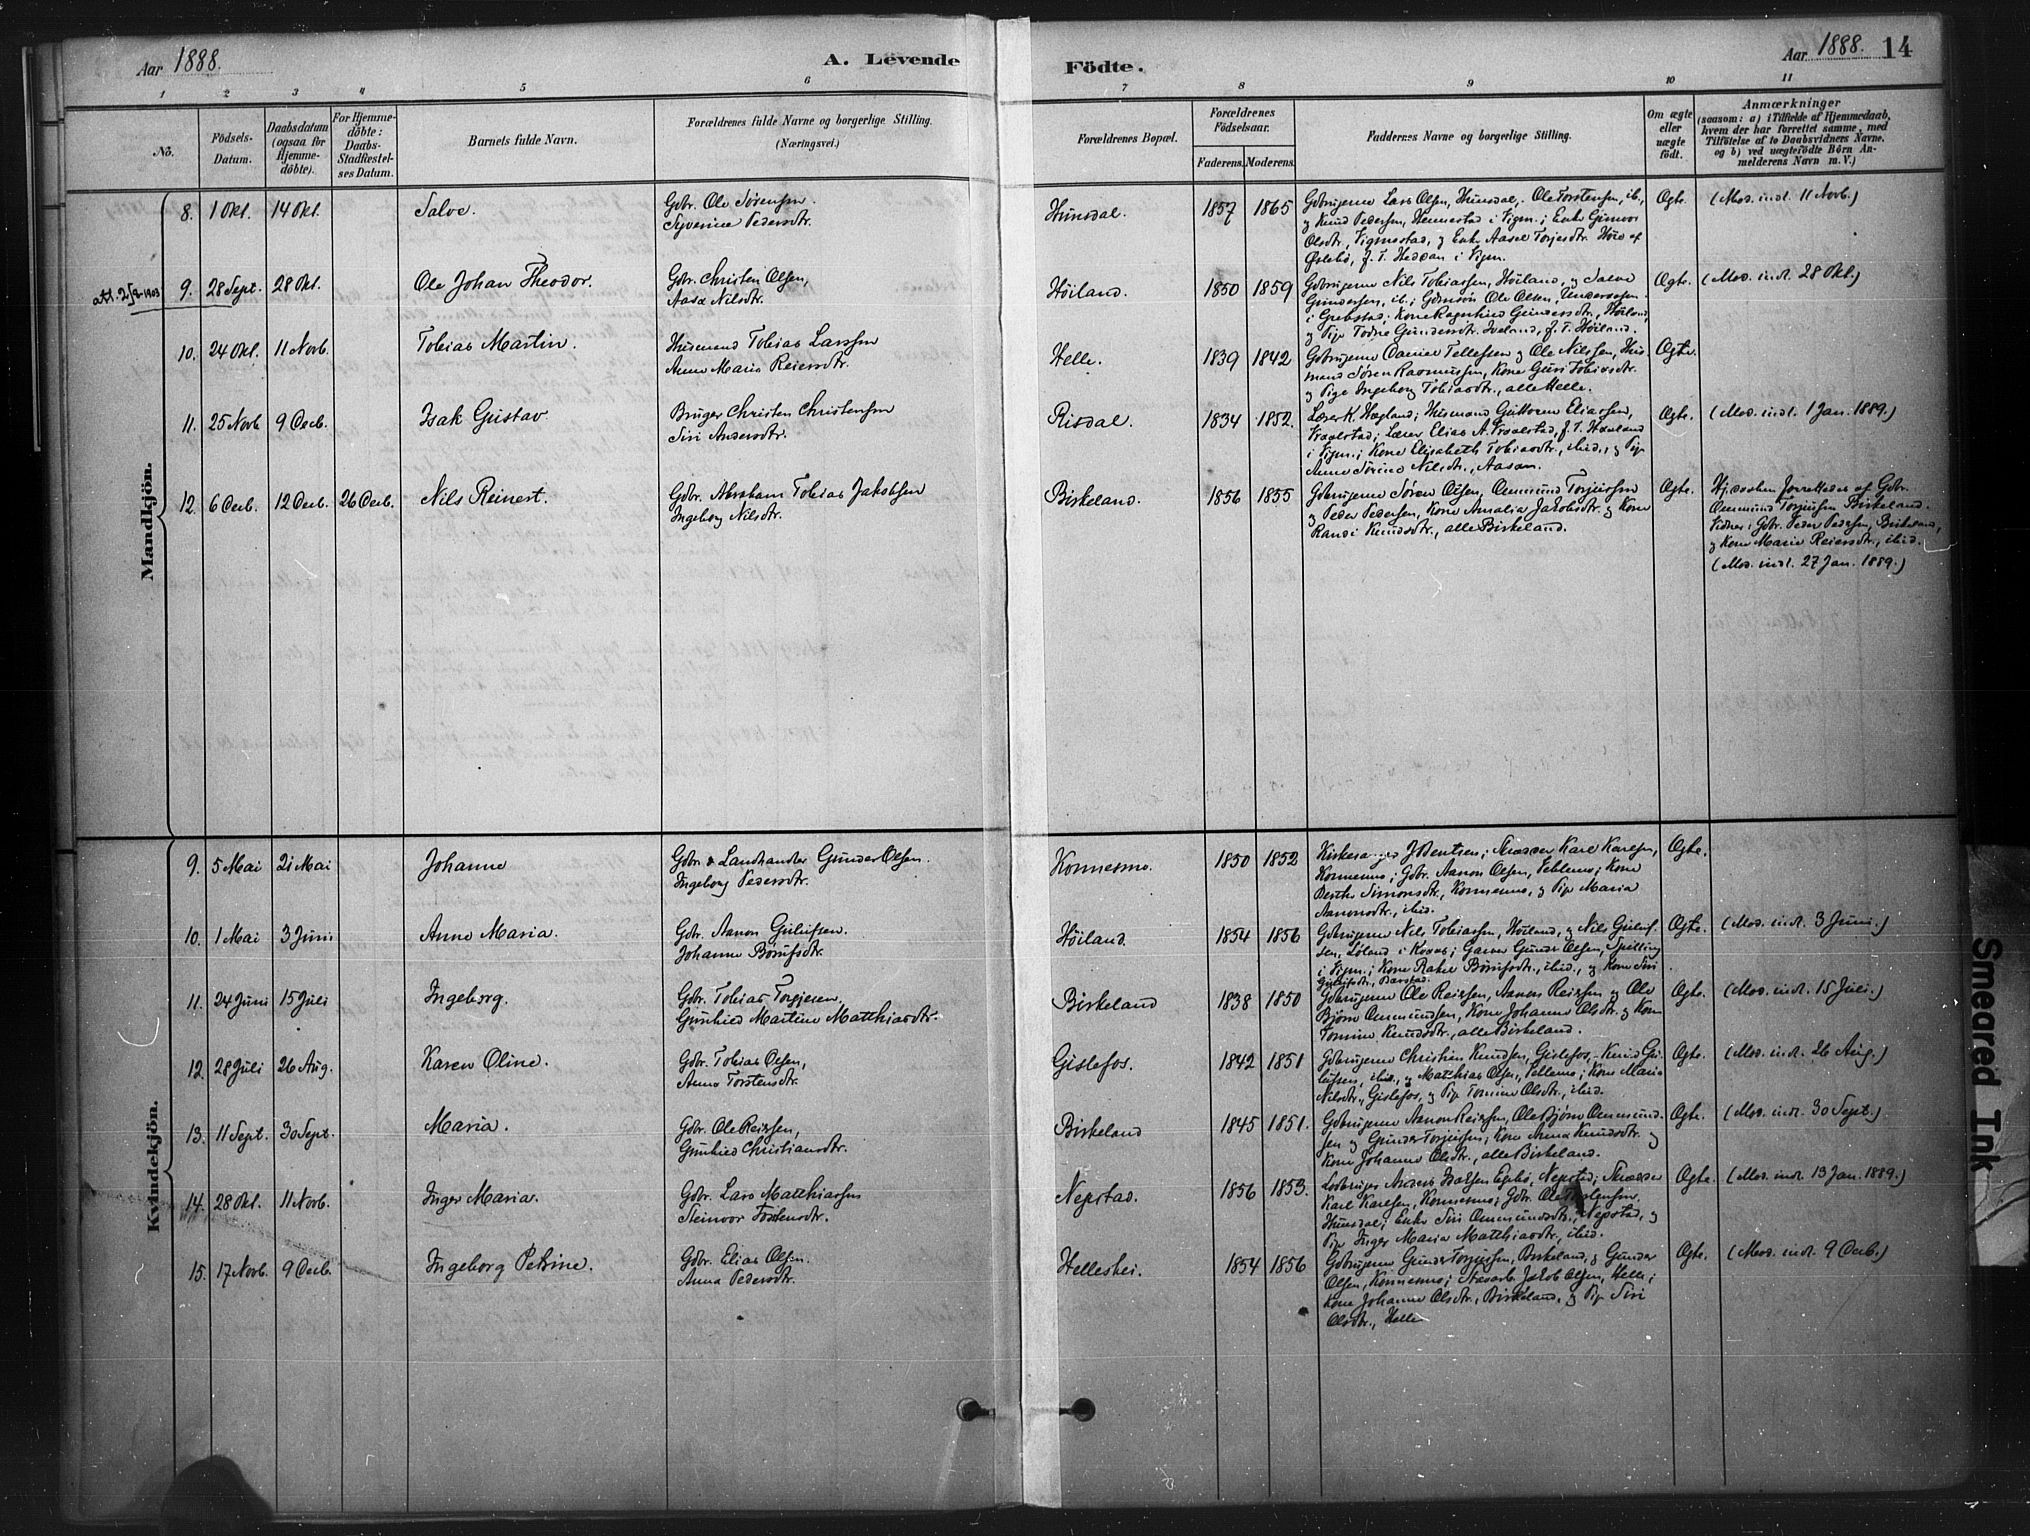 Aar 1888.
A. Levende
Födte.
Aar 1888. 14
1 2 3 4 5 6 7 8 9 10 11
No.
Födsels-
Datum.
Daabsdatum
(ogsaa for
Hjemme-
döbte).
For Hjemme-
döbte:
Daabs-
Stadfæstel-
ses Datum.
Barnets fulde Navn.
Forældrenes fulde Navne og borgerlige Stilling.
(Næringsvei.)
Forældrenes Bopæl.
Forældrenes
Födselsaar.
Faderens. Moderens.
Faddernes Navne og borgerlige Stilling.
Om ægte
eller
uægte
födt.
Anmærkninger
(saasom: a) i Tilfælde af Hjemmedaab,
hvem der har forrettet samme, med
Tilföielse af to Daabsvidners Navne.
og b) ved uægtefödte Börn An-
melderens Navn m. V.)
Mandkjön.
8. 1 Okt. 14 Okt. Salve.
Gbr. Ole Sørensen
Syverine Pedersdtr.
Hunsdal. 1857 1865
Gdbrugerne Lars Olsen, Hunsdal, Ole Torstensen, ib.,
og Knud Pedersen, Hennestad i Vigm.; Enke Gunvor
Olsdtr., Vigmestad, og Enke Aasel Torjesdtr. Høie af
Øslebø, f. T. Heddan i Vigm.
Ægte. (Mod. indl. 11 Novb.)
att. 2/9-1903
9. 28 Sept. 28 Okt. Ole Johan Theodor.
Gbr. Christen Olsen,
Aasa Nilsdtr.
Høiland. 1850 1859
Gdbrugerne Nils Tobiassen, Høiland, og Salve
Gundersen, ib.; Gdmsøn Ole Olsen,
i Grebstad; Kone Ragnhild Gundersdtr., Høiland,
og Pige Todne Gundersdtr. Iveland, f. T. Høiland.
Ægte. (Mod. indl. 28 Okt.)
10. 24 Okt. 11 Novb. Tobias Martin.
Husmand Tobias Larssen
Anne Maria Reiersdtr.
Helle. 1839 1842
Gdbrugerne Daniel Tellefsen og Ole Nilssen, Hus-
mand Søren Rasmussen, Kone Guri Tobiasdtr.
og Pige Ingeborg Tobiasdtr., alle Helle.
Ægte.
11. 25 Novb 9 Decb. Isak Gustav
Bruger Christen Christensen
Siri Andersdtr.
Risdal. 1834 1852.
Lærer K. Hægland; Husmand Guttorm Eliassen,
Vraalstad; Lærer Elias A. Vraalstad, f. T. Haaland
i Vigm.; Kone Elisabeth Tobiasdtr., ibid., og Pige
Anne Sørine Nilsdtr., Aasan.
Ægte. (Mod. indl. 1 Jan. 1889.)
12. 6 Decb. 12 Decb. 26 Decb. Nils Reinert.
Gdbr. Abraham Tobias Jakobsen
Ingeborg Nilsdtr.
Birkeland. 1856 1855
Gdbrugerne Søren Olsen, Ommund Torjussen
og Peder Pedersen, Kone Amalia Jakobsdtr. og Kone
Randi Knudsdtr., alle Birkeland.
Ægte. Hj.daaben forrettedes af Gdbr.
Ommund Torjussen Birkeland.
Vidner: Gdbr. Peder Pedersen, Birkeland,
og Kone Marie Reiersdtr., ibid.
(Mod. indl. 27 Jan. 1889.)
Kvindekjön.
9. 5 Mai 21 Mai Johanne
Gdbr. & Landhandler Gunder Olsen.
Ingeborg Pedersdtr.
Konnesmo. 1850 1852
Kirkesanger J. Bentsen; Skrædder Karl Karlsen,
Konnesmo; Gdbr. Aanon Olsen, Feblemo; Kone
Berthe Simonsdtr., Konnesmo, og Pige Maria
Aanonsdtr., ibid.
Ægte.
10. 1 Mai 3 Juni Anne Maria.
Gdbr. Aanon Gulufsen.
Johanne Børufsdtr.
Høiland. 1854 1856
Gdbrugerne Nils Tobiassen, Høiland, og Nils Guluf-
sen, Løland i Kvaas; Garver Gunder Olsen, Spilling
i Vigm.; Kone Rakel Børufsdtr., ibid., og Kone Siri
Gulufsdtr., Barstad.
Ægte. (Mod. indl. 3 Juni.)
11. 24 Juni 15 Juli Ingeborg.
Gdbr. Tobias Torgjesen,
Gunhild Martine Matthiasdtr.
Birkeland 1838 1850
Gdbrugerne Ole Reiersen, Aanon Reiersen og Ole
Bjørn Ommundsen, Kone Johanne Olsdtr. og Kone
Tomine Knudsdtr., alle Birkeland.
Ægte. (Mod. indl. 15 Juli.)
12. 28 Juli 26 Aug. Karen Oline.
Gdbr. Tobias Olsen,
Anna Torstensdtr.
Gislefos. 1842 1851
Gdbrugerne Christian Knudsen, Gislefos, Knud Gu-
lufsen, ibid., og Matthias Olsen, Fellemo; Kone Maria
Nilsdtr., Gislefos, og Pige Tomine Olsdtr., ibid.
Ægte. (Mod. indl. 26 Aug.)
13. 11 Sept. 30 Sept. Maria.
Gdbr. Ole Reiersen,
Gunhild Christiansdtr.
Birkeland 1845 1851.
Gdbrugerne Aanon Reiersen, Ole Bjørn Ommund-
sen og Gunder Torjussen, Kone Anna Knudsdtr. og
Kone Johanne Olsdtr., alle Birkeland.
Ægte. (Mod. indl. 30 Sept.)
14. 28 Okt. 11 Novb. Inger Maria.
Gdbr. Lars Matthiassen
Steinvor Torstensdtr.
Nepstad. 1856 1853.
Anders Isaksen Egebø, Nepstad; Skrædder
Karl Karlsen, Konnesmo; Gdbr. Ole
Hunsdal; Enke Siri Ommundsdtr., Nepstad, og
Pige Inger Maria Matthiasdtr., ibid.
Ægte. (Mod. indl. 13 Jan. 1889.)
15. 17 Novb. 9 Decb. Ingeborg Petrine.
Gdbr. Elias Olsen.
Anna Pedersdtr.
Helleshei. 1854 1856
Gdbrugerne Gunder Torjussen, Birkeland, og Gunder
Olsen, Konnesmo; Jakob Olsen, Helle;
Kone Johanne Olsdtr., Birkeland, og Pige Siri
Olsdtr., Helle
Ægte. (Mod. indl. 9 Decb.)
Smeared Ink